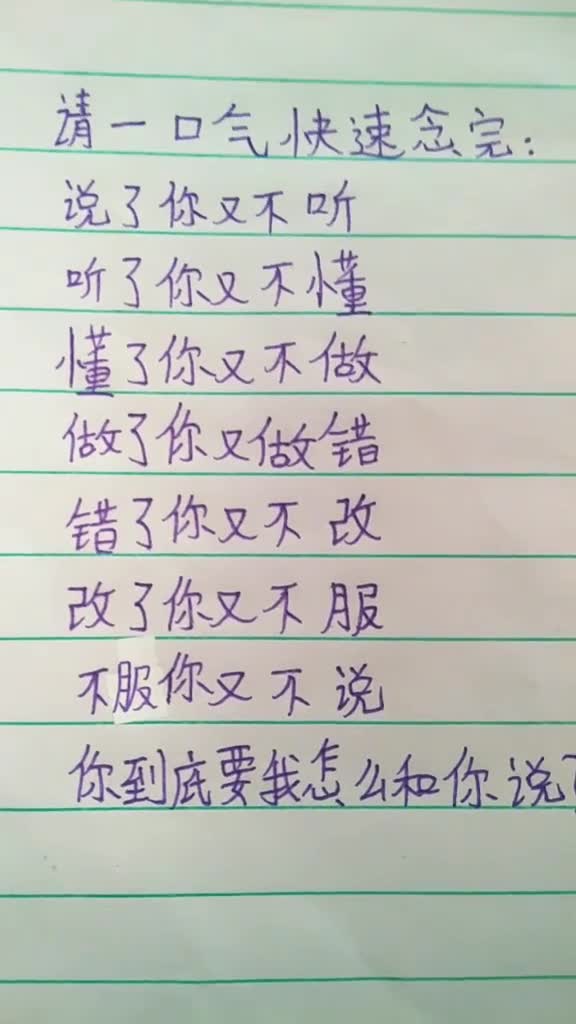 请一口气快速念完:
说了你又不听
听了你又不懂
懂了你又不做
做了你又做错
错了你又不改
改了你又不服
不服你又不说
你到底要我怎么和你说